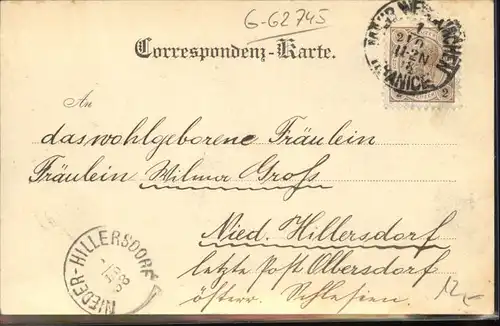 G-62745
Correspondenz-Karte.
MÄHR. WEISSKIRCHEN
HRANICE
2 2
An
das wohlgeborene Fräulein
Fräulein Wilma Groß
Nied. Hillersdorf
letzte Post Olbersdorf
österr. Schlesien.
NIEDER-HILLERSDORF
98
12,-